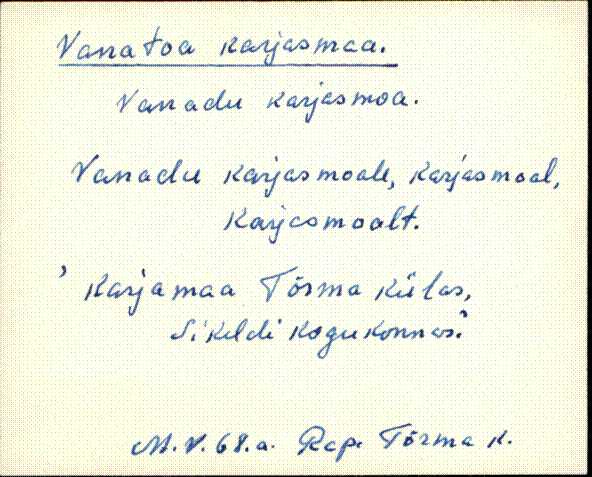 Vanatoa karjasmaa.
Vanadu karjasmoa.
Vanadu karjasmoale, karjasmoal,
karjasmoalt.
' karjamaa Tõrma külas,
Sikeldi kogukonnas.'
M.V. 68.a. Rap. Tõrma k.